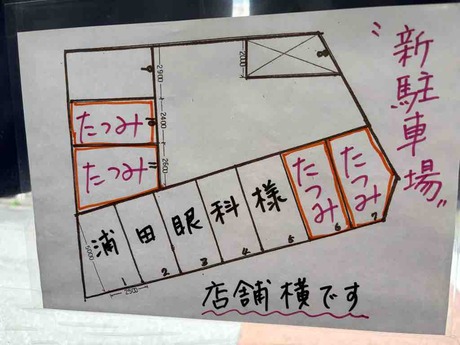 〝新駐車場〟
2000
2900
2400
2600
たつみ
たつみ
浦田眼科様
たつみ
たつみ
5000
2500
1
2
3
4
5
6
7
店舗横です